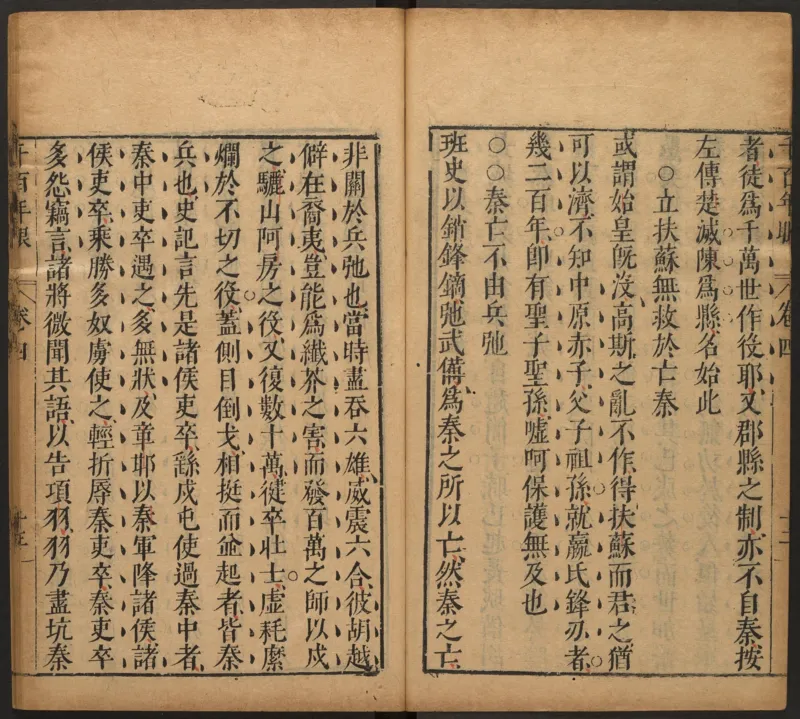 者徒爲千萬世作役耶又郡縣之制亦不自秦按
左傳楚滅陳爲縣名始此
○立扶蘇無救於亡秦
或謂始皇旣沒高斯之亂不作得扶蘇而君之猶
可以濟不知中原赤子父子祖孫就嬴氏鋒刃者
幾二百年卽有聖子聖孫噓呵保護無及也
○○秦亡不由兵弛
班史以銷鋒鏑弛武備爲秦之所以亡然秦之亡
非關於兵弛也當時盡吞六雄威震六合彼胡越
僻在裔夷豈能爲纖芥之害而發百萬之師以戍
之驪山阿房之役又復數十萬徤卒壯士虛耗糜
爛於不切之役葢側目倒戈相挺而並起者皆秦
兵也史記言先是諸侯吏卒繇戍屯使過秦中者
秦中吏卒遇之多無狀及章邯以秦軍降諸侯諸
侯吏卒乘勝多奴虜使之輕折辱秦吏卒秦吏卒
多怨竊言諸將微聞其語以告項羽羽乃盡坑秦
千百年眼
卷四
十三